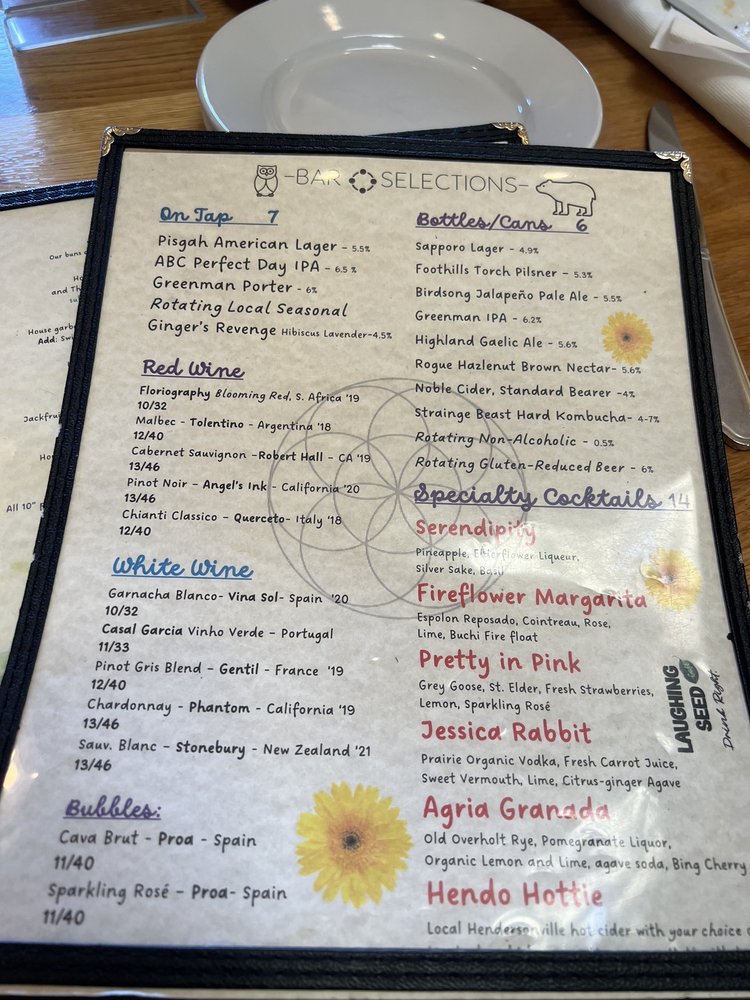 -BAR SELECTIONS-
On Tap 7
Pisgah American Lager - 5.5%
ABC Perfect Day IPA - 6.5 %
Greenman Porter - 6%
Rotating Local Seasonal
Ginger's Revenge Hibiscus Lavender-4.5%
Red Wine
Floriography Blooming Red, S. Africa '19
10/32
Malbec - Tolentino - Argentina '18
12/40
Cabernet Sauvignon -Robert Hall - CA '19
13/46
Pinot Noir - Angel's Ink - California '20
13/46
Chianti Classico - Querceto- Italy '18
12/40
White Wine
Garnacha Blanco- Vina Sol- Spain '20
10/32
Casal Garcia Vinho Verde - Portugal
11/33
Pinot Gris Blend - Gentil - France '19
12/40
Chardonnay - Phantom - California '19
13/46
Sauv. Blanc - Stonebury - New Zealand '21
13/46
Bubbles:
Cava Brut - Proa - Spain
11/40
Sparkling Rosé - Proa- Spain
11/40
Bottles/Cans 6
Sapporo Lager - 4.9%
Foothills Torch Pilsner - 5.3%
Birdsong Jalapeño Pale Ale - 5.5%
Greenman IPA - 6.2%
Highland Gaelic Ale - 5.6%
Rogue Hazlenut Brown Nectar- 5.6%
Noble Cider, Standard Bearer -4%
Strainge Beast Hard Kombucha- 4-7%
Rotating Non-Alcoholic - 0.5%
Rotating Gluten-Reduced Beer - 6%
Specialty Cocktails 14
Serendipity
Pineapple, Elderflower Liqueur,
Silver Sake, Basil
Fireflower Margarita
Espolon Reposado, Cointreau, Rose,
Lime, Buchi Fire float
Pretty in Pink
Grey Goose, St. Elder, Fresh Strawberries,
Lemon, Sparkling Rosé
Jessica Rabbit
Prairie Organic Vodka, Fresh Carrot Juice,
Sweet Vermouth, Lime, Citrus-ginger Agave
Agria Granada
Old Overholt Rye, Pomegranate Liquor,
Organic Lemon and Lime, agave soda, Bing Cherry
Hendo Hottie
Local Hendersonville hot cider with your choice
LAUGHING
SEED
Drink Right.
Our buns
and Th
House garb
Add: Sw
Jackfrui
All 10"